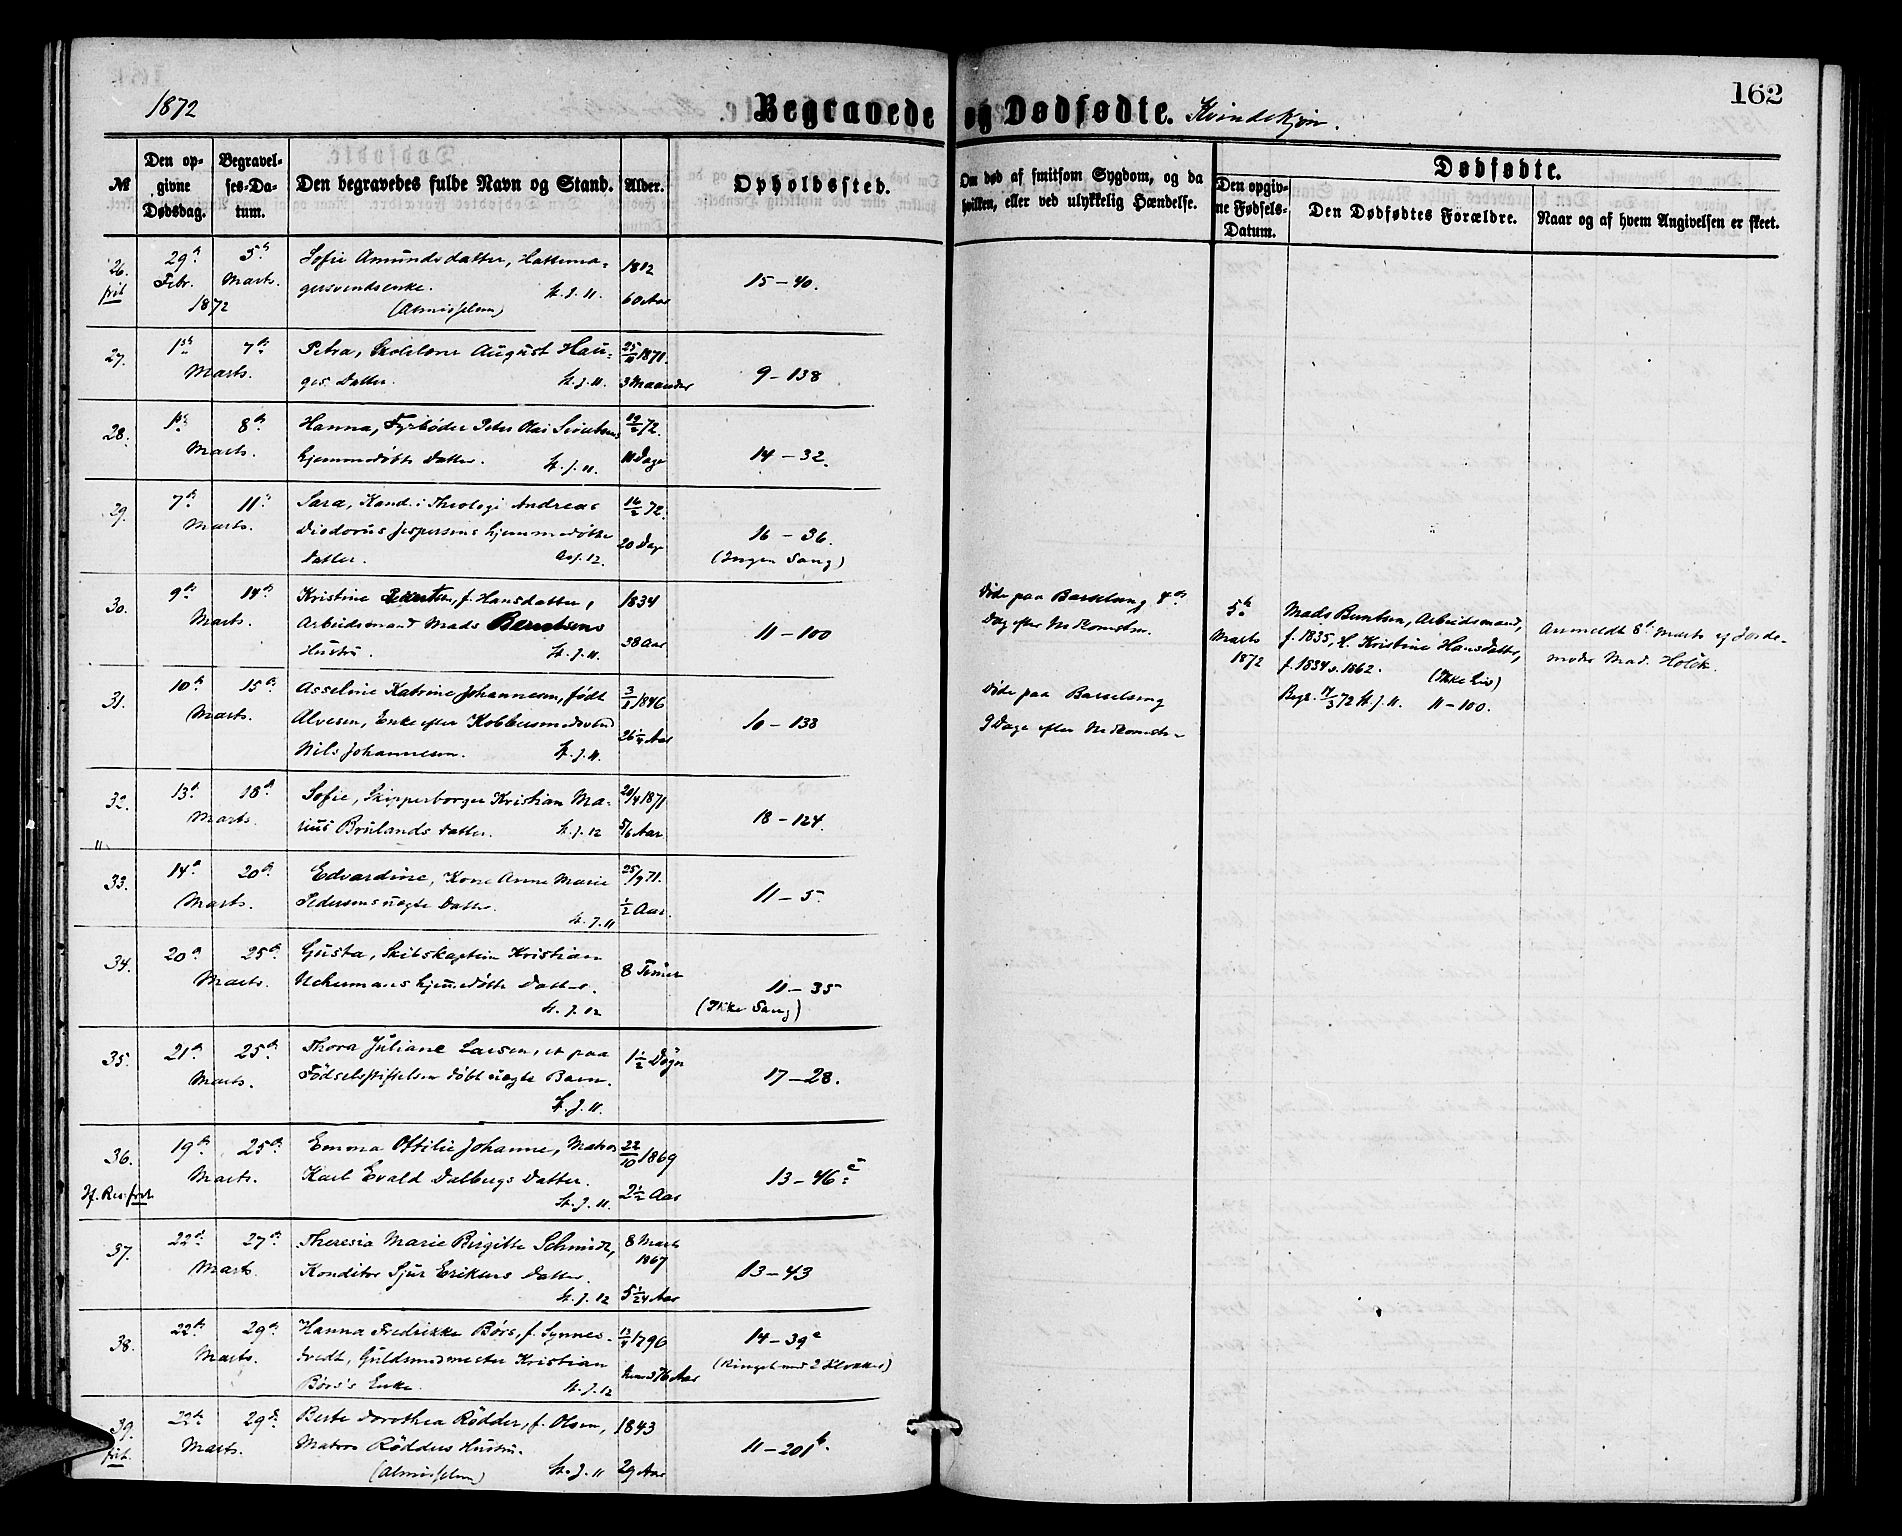 1872
Begravede og Dødfødte. Kvindekjøn.
162
№
Den opgivne Dødsdag.
Begravelses-Datum.
Den begravedes fulde Navn og Stand.
Alder.
Opholdssted.
Om død af smitsom Sygdom, og da hvilken, eller ved ulykkelig Hændelse.
Dødfødte.
Den opgivne Fødsels-Datum.
Den Dødfødtes Forældre.
Naar og af hvem Angivelsen er skeet.
26. frit
29de Febr. 1872
5te Marts.
Sofie Amundsdatter, Hattema-
gersvendsenke. St. J. 11.
(Almisselem)
1812
60 Aar
15 – 40.
27.
1ste 7de
Marts.
Petra, Skolelærer August Hau-
ges Datter. St. J. 11.
25/11 1871.
3 Maaneder
9 – 138
28.
1ste 8de
Marts.
Hanna, Fyrbøder Peter Olai
hjemmedøbte Datter. St. J. 11.
19/2 72.
11 Dage
14 – 32.
29.
7de 11te
Marts.
Sara, Kand. i Theologi Andreas
Diodorus Jespersens hjemmedøbte
Datter. As. J. 12.
16/2 72.
20 Dage
16 – 36.
(Ingen Sang)
30.
9de 14de
Marts.
Kristine Berntsen, f. Hansdatter,
Arbeidsmand Mads Berntsens
Hustru. St. J. 11.
1834
38 Aar
11 – 100
Døde paa Barselseng 4de
Dag efter Nedkomsten.
5te Marts 1872
Mads Berntsen, Arbeidsmand,
f. 1835, H. Kristine Hansdatter,
f. 1834 v. 1862. (Ikke Liv)
Begr. 14/3 72 St. J. 11. 11 – 100.
Anmeldt 8de Marts af Jorde-
moder Mad. Holck.
31.
10de 15de
Marts.
Asseline Katrine Johannesen, født
Alvesen, Enke efter Kobbersmedsvend
Nils Johannesen. St. J. 11.
1846
26 1/4 Aar
10 – 138
Døde paa Barselseng
9 Dage efter Nedkomsten
32.
13de 18de
Marts.
Sofie, Skipperborger Kristian Ma-
rius Brulands Datter. St. J. 12
20/4 1871
5/6 Aar
18 – 124.
33.
14de 20de
Marts.
Edvardine, Kone Anne Marie
Pedersens uægte Datter. St. J. 11
25/9 71.
1/2 Aar.
11 – 5.
34.
20de 25de
Marts.
Gusta, Skibskaptein Kristian
Uchermans hjemmedøbte Datter.
St. J. 12
8 Timer
11 – 35
(Ikke Sang)
35.
21de 25de
Marts.
Thora Juliane Larsen, et paa
Fødselsstiftelsen døbt uægte Barn.
St. J. 11.
1 1/2 Døgn
17 – 28.
36.
Hf. Res. frit
19de 25de
Marts.
Emma Ottilie Johanne, Matros
Karl Evald Dalbergs Datter.
St. J. 11.
22/10 1869
2 1/2 Aar
13 – 46 c.
37.
22de 27de
Marts.
Theresia Marie Birgitte Schmidt,
Konditor Sjur Eriksens Datter.
St. J. 12
8 Marts 1867
5 1/24 Aar
13 – 43
38.
22de 29de
Marts.
Hanna Fredrikke Børs, f. Synnes-
tvedt, Guldsmedmester Kristian
Børs's Enke. St. J. 12
1796
76 Aar
14 – 39 c
(Ringet med 2 Klokker)
39. frit.
22de 29de
Marts.
Berte Dorothea Rødder, f. Olsen,
Matros Rødders Hustru.
(Almisselem) St. J. 11
1843
29 Aar
11 – 201 b.